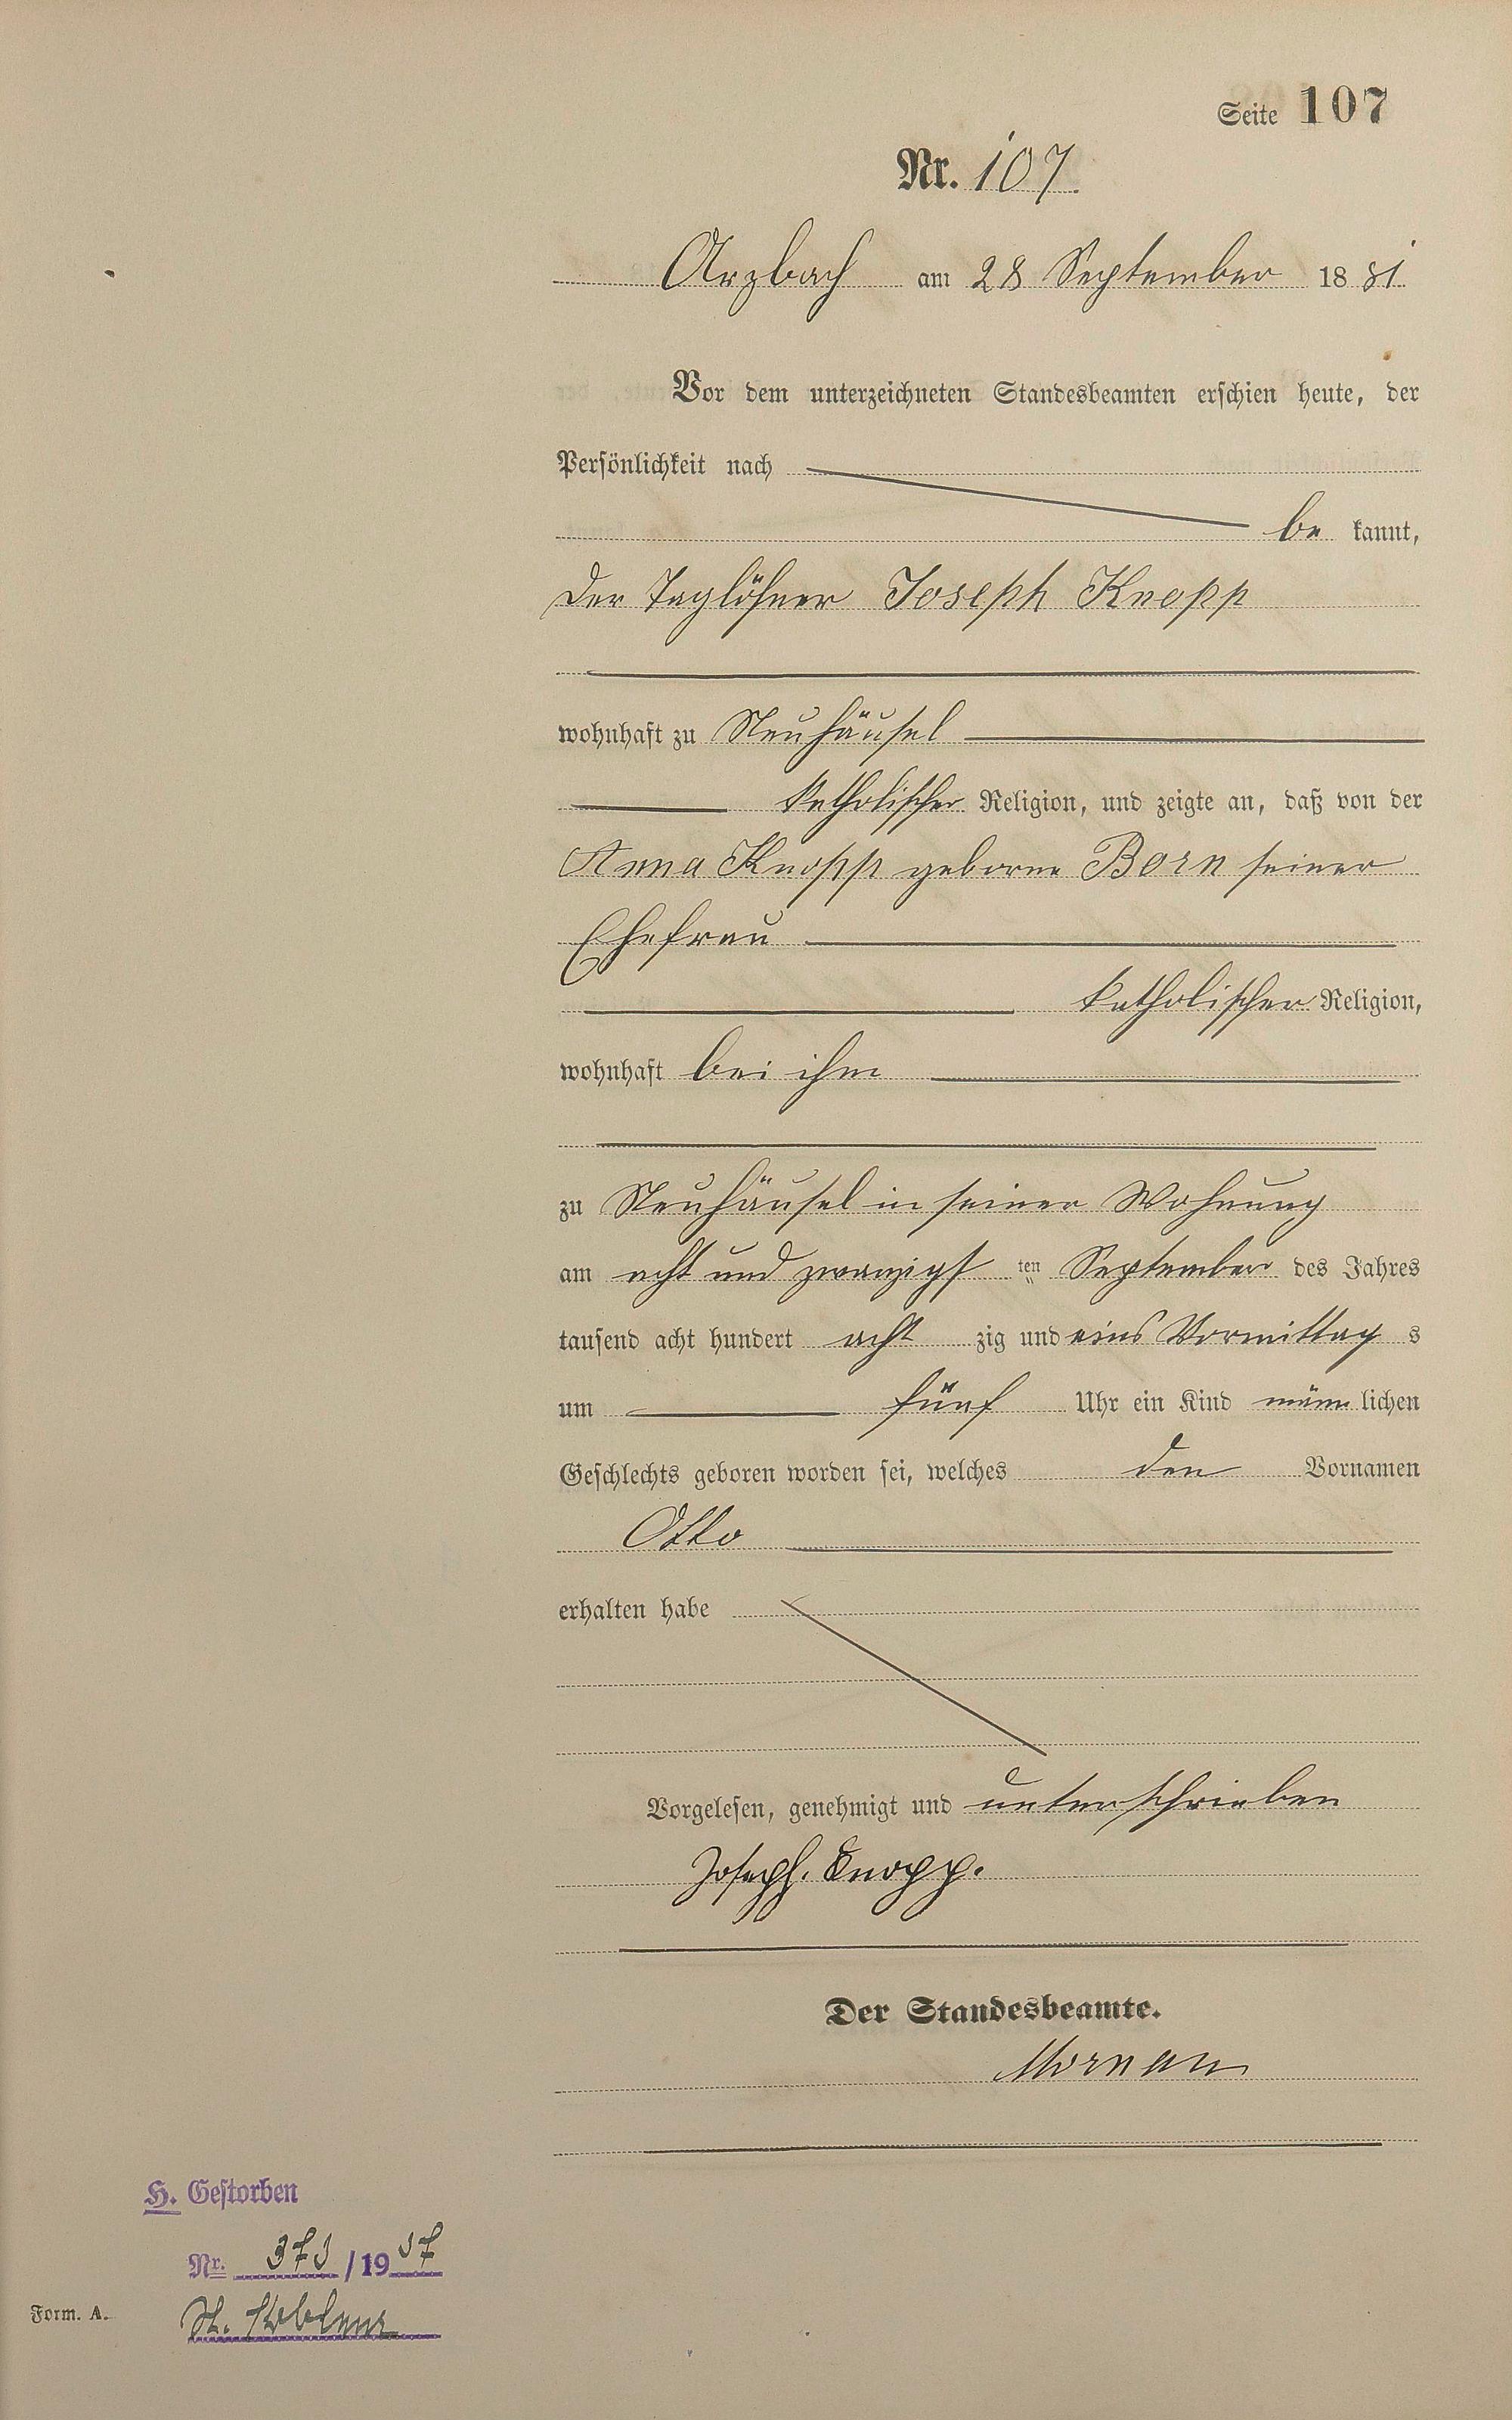 Seite 107
Nr. 107.
Arzbach am 28 September 1881.
Vor dem unterzeichneten Standesbeamten erschien heute, der
Persönlichkeit nach
be kannt,
der Taglöhner Joseph Knopp
wohnhaft zu Neuhäusel
katholischer Religion, und zeigte an, daß von der
Anna Knopp geborne Born seiner
Ehefrau
katholischer Religion,
wohnhaft bei ihm
zu Neuhäusel in seiner Wohnung
am acht und zwanzigst ten September des Jahres
tausend acht hundert acht zig und eins Vormittag s
um fünf Uhr ein Kind männ lichen
Geschlechts geboren worden sei, welches den Vornamen
Otto
erhalten habe
Vorgelesen, genehmigt und unterschrieben
Joseph. Knopp.
Der Standesbeamte.
H. Gestorben
Nr. /19
St. Koblenz
Form. A.